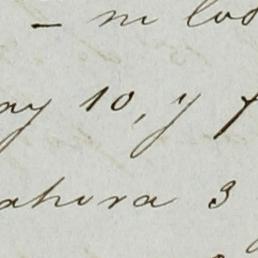 – ni los
ay 10, y f
ahora 3